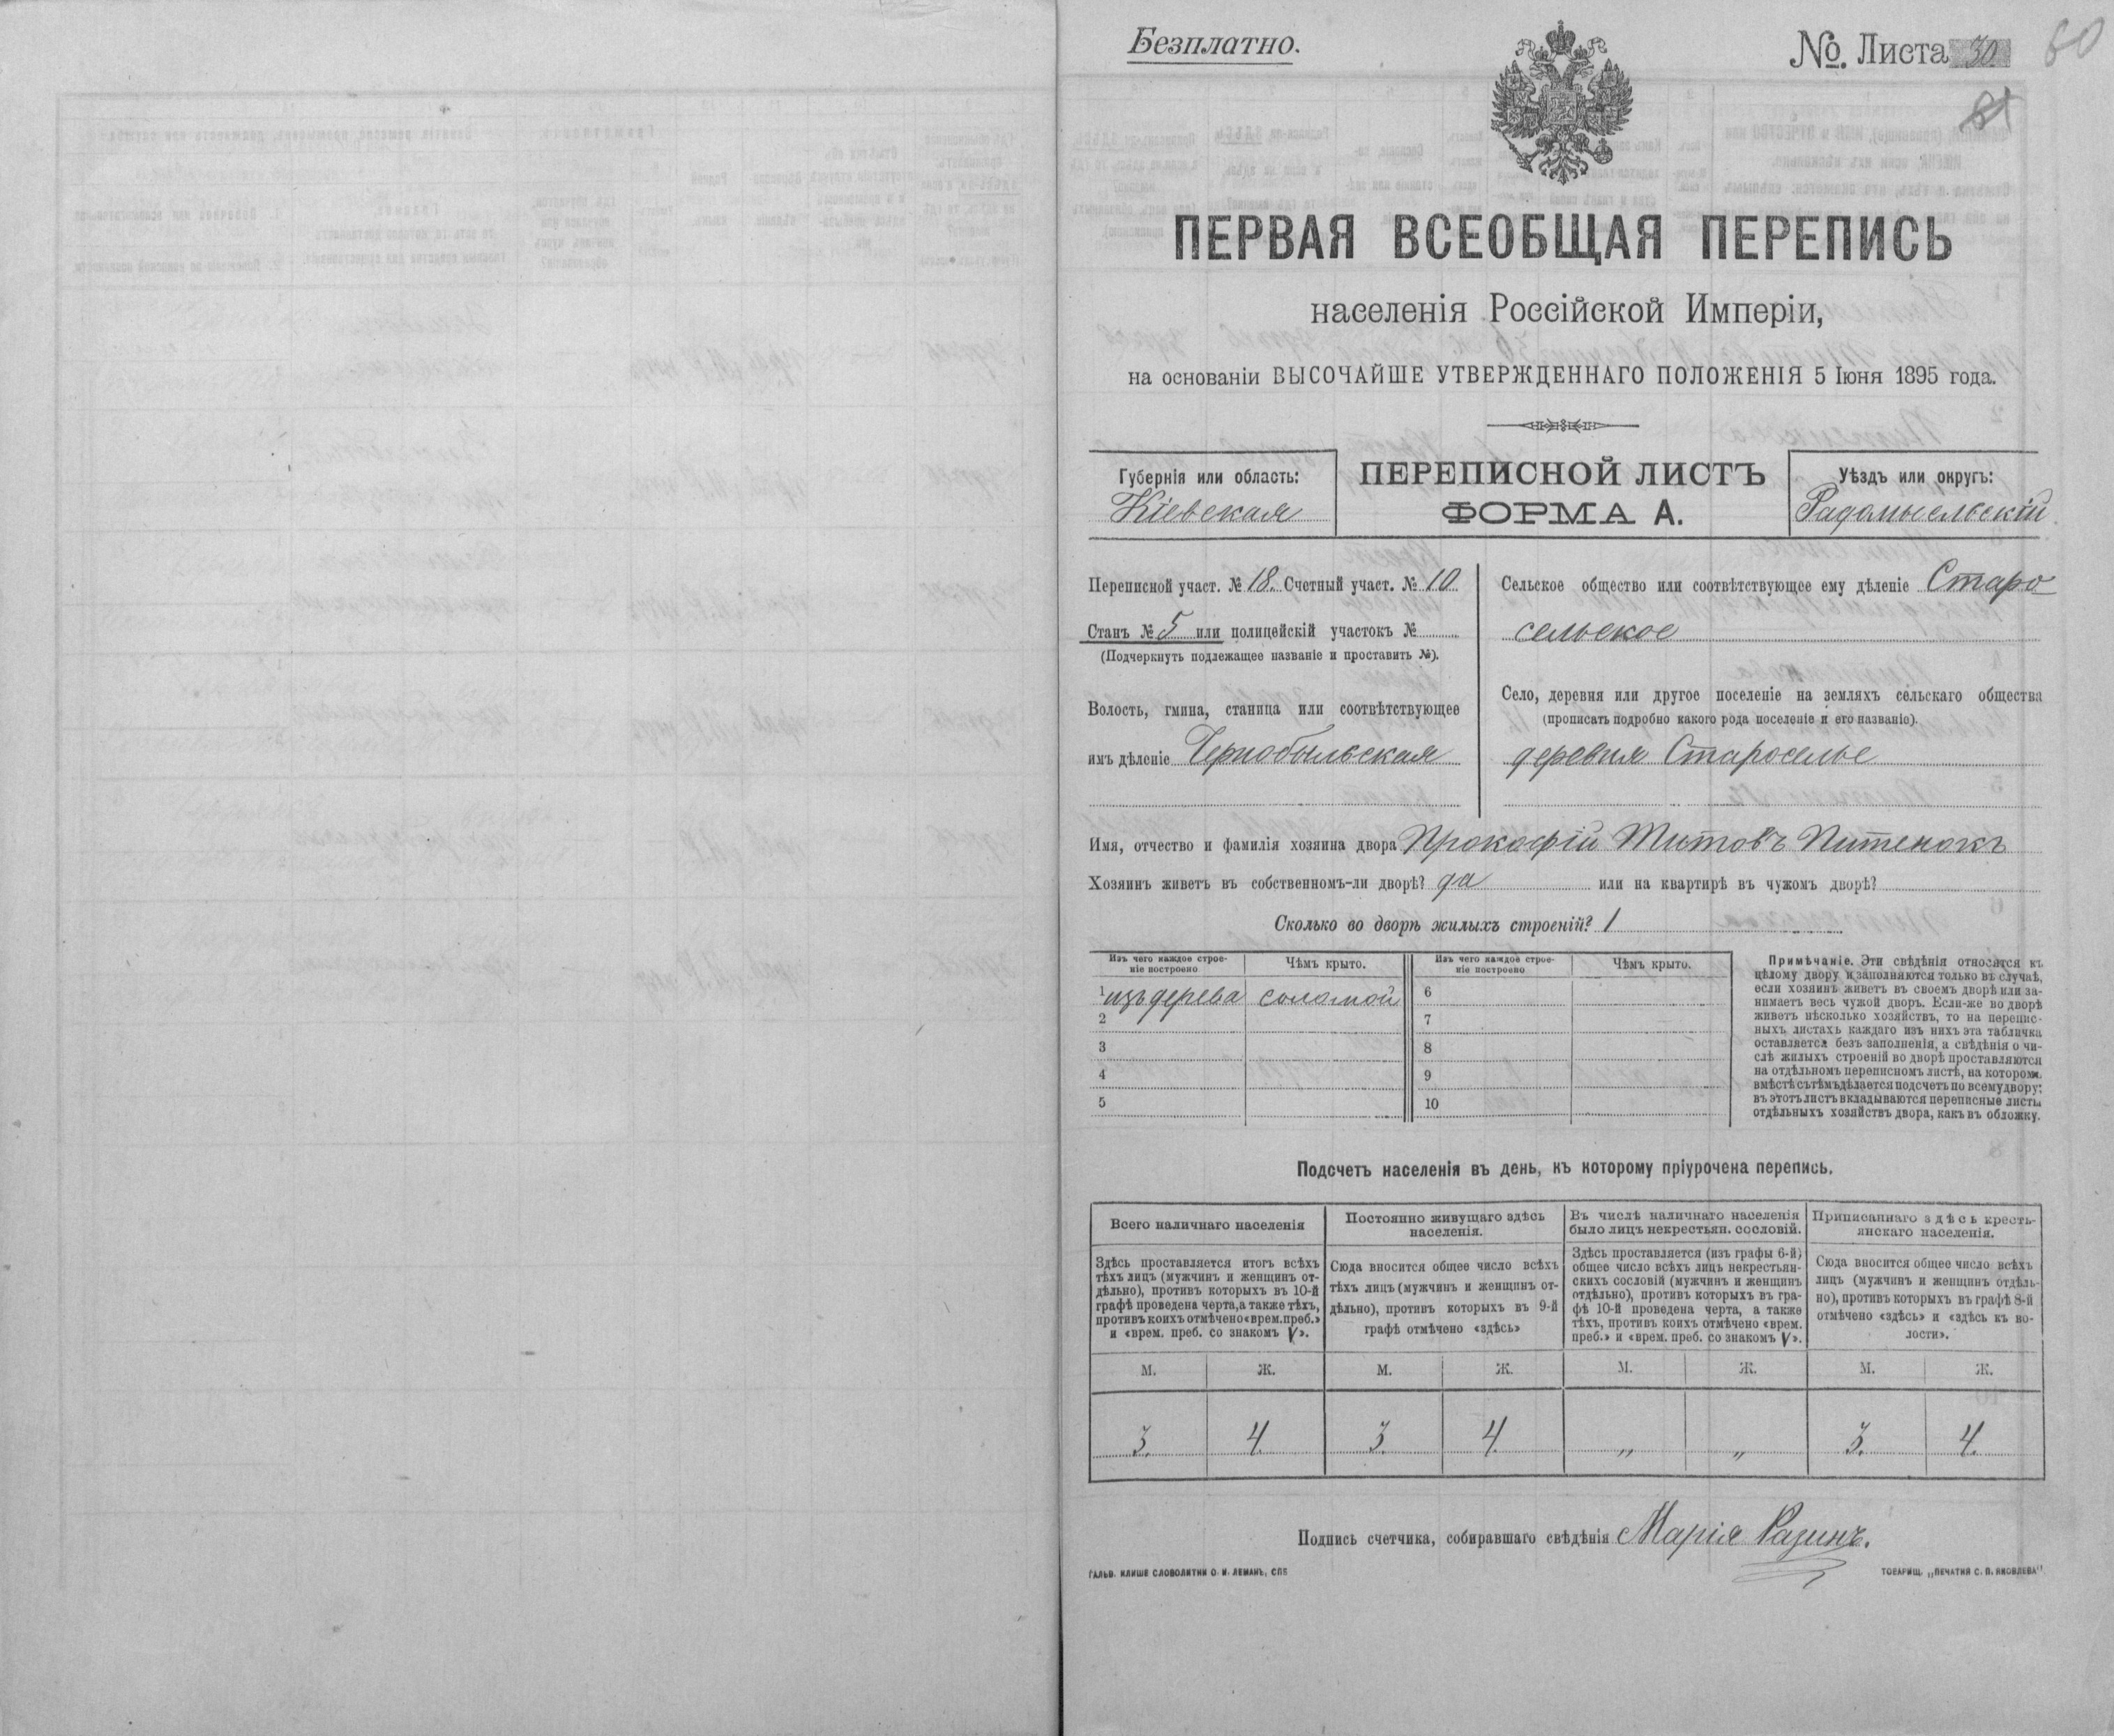 Безплатно.
№. Листа 30
60
81
ПЕРВАЯ ВСЕОБЩАЯ ПЕРЕПИСЬ
населенія Россійской Имперіи,
на основаніи ВЫСОЧАЙШЕ УТВЕРЖДЕННАГО ПОЛОЖЕНІЯ 5 Іюня 1895 года.
Губернія или область:
Кіевская
ПЕРЕПИСНОЙ ЛИСТЪ
ФОРМА А.
Уѣздъ или округъ:
Радомысельскій
Переписной участ. № 18. Счетный участ. № 10.
Станъ № 5 или полицейскій участокъ №
(Подчеркнуть подлежащее названіе и проставить №).
Волость, гмина, станица или соотвѣтствующее
имъ дѣленіе Чернобыльская
Сельское общество или соотвѣтствующее ему дѣленіе Старо-
сельское
Село, деревня или другое поселеніе на земляхъ сельскаго общества
(прописать подробно какого рода поселеніе и его названіе).
деревня Староселье
Имя, отчество и фамилія хозяина двора Прокофій Титовъ Питенокъ
Хозяинъ живетъ въ собственномъ-ли дворѣ? да или на квартирѣ въ чужомъ дворѣ?
Сколько во дворѣ жилыхъ строеній? 1
Изъ чего каждое строе-
ніе построено
Чѣмъ крыто.
Изъ чего каждое строе-
ніе построено
Чѣмъ крыто.
1 изъ дерева соломой 6
2 7
3 8
4 9
5 10
Примѣчаніе. Эти свѣдѣнія относятся къ
цѣлому двору и заполняются только въ случаѣ,
если хозяинъ живетъ въ своемъ дворѣ или за-
нимаетъ весь чужой дворъ. Если-же во дворѣ
живетъ нѣсколько хозяйствъ, то на перепис-
ныхъ листахъ каждаго изъ нихъ эта табличка
оставляется безъ заполненія, а свѣдѣнія о чи-
слѣ жилыхъ строеній во дворѣ проставляются
на отдѣльномъ переписномъ листѣ, на которомъ
вмѣстѣ съ тѣмъ дѣлается подсчетъ по всему двору;
въ этотъ листъ вкладываются переписные листы
отдѣльныхъ хозяйствъ двора, какъ въ обложку.
Подсчетъ населенія въ день, къ которому пріурочена перепись.
Всего наличнаго населенія
Здѣсь проставляется итогъ всѣхъ
тѣхъ лицъ (мужчинъ и женщинъ от-
дѣльно), противъ которыхъ въ 10-й
графѣ проведена черта, а также тѣхъ,
противъ коихъ отмѣчено «врем. преб.»
и «врем. преб. со знакомъ V».
Постоянно живущаго здѣсь
населенія.
Сюда вносится общее число всѣхъ
тѣхъ лицъ (мужчинъ и женщинъ от-
дѣльно), противъ которыхъ въ 9-й
графѣ отмѣчено «здѣсь»
Въ числѣ наличнаго населенія
было лицъ некрестьян. сословій.
Здѣсь проставляется (изъ графы 6-й)
общее число всѣхъ лицъ некрестьян-
скихъ сословій (мужчинъ и женщинъ
отдѣльно), противъ которыхъ въ гра-
фѣ 10-й проведена черта, а также
тѣхъ, противъ коихъ отмѣчено «врем.
преб.» и «врем. преб. со знакомъ V».
Приписаннаго здѣсь кресть-
янскаго населенія.
Сюда вносится общее число всѣхъ
лицъ (мужчинъ и женщинъ отдѣль-
но), противъ которыхъ въ графѣ 8-й
отмѣчено «здѣсь» и «здѣсь къ во-
лости».
М. Ж. М. Ж. М. Ж. М. Ж.
3. 4 3. 4. „ „ 3. 4.
Подпись счетчика, собиравшаго свѣдѣнія Марія Разинъ.
ГАЛЬВ. КЛИШЕ СЛОВОЛИТНИ О. И. ЛЕМАНЪ, СПБ
ТОВАРИЩ. „ПЕЧАТНЯ С. П. ЯКОВЛЕВА"